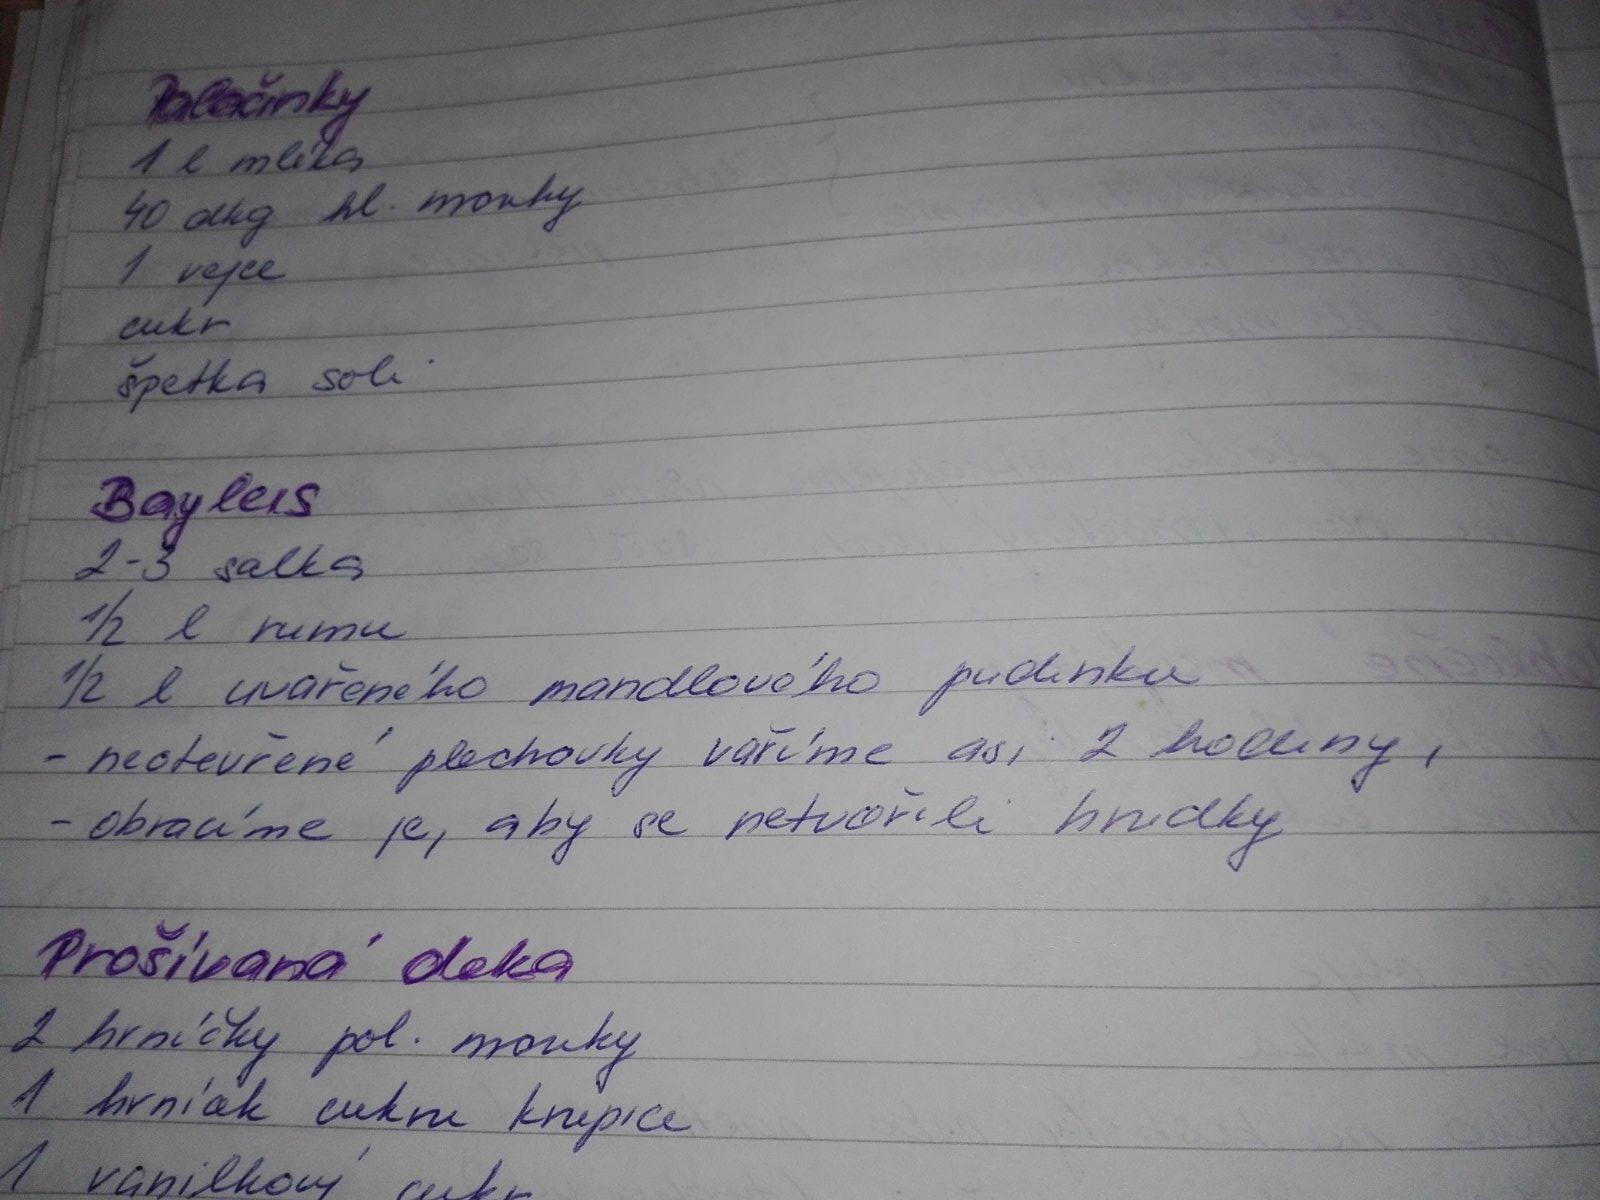 Palačinky
1 l mlíka
40 dkg hl. mouky
1 vejce
cukr
špetka soli
Bayleis
2-3 salka
1/2 l rumu
1/2 l uvařeného mandlového pudinku
- neotevřené plechovky vaříme asi 2 hodiny,
- obracíme je, aby se netvořili hrudky
Prošívaná deka
2 hrníčky pol. mouky
1 hrníček cukru krupice
1 vanilkový cukr